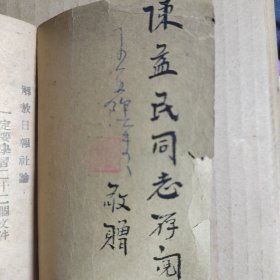 陳益民同志存閱
敬贈
解放日報社論
一定要學習二十二個文件